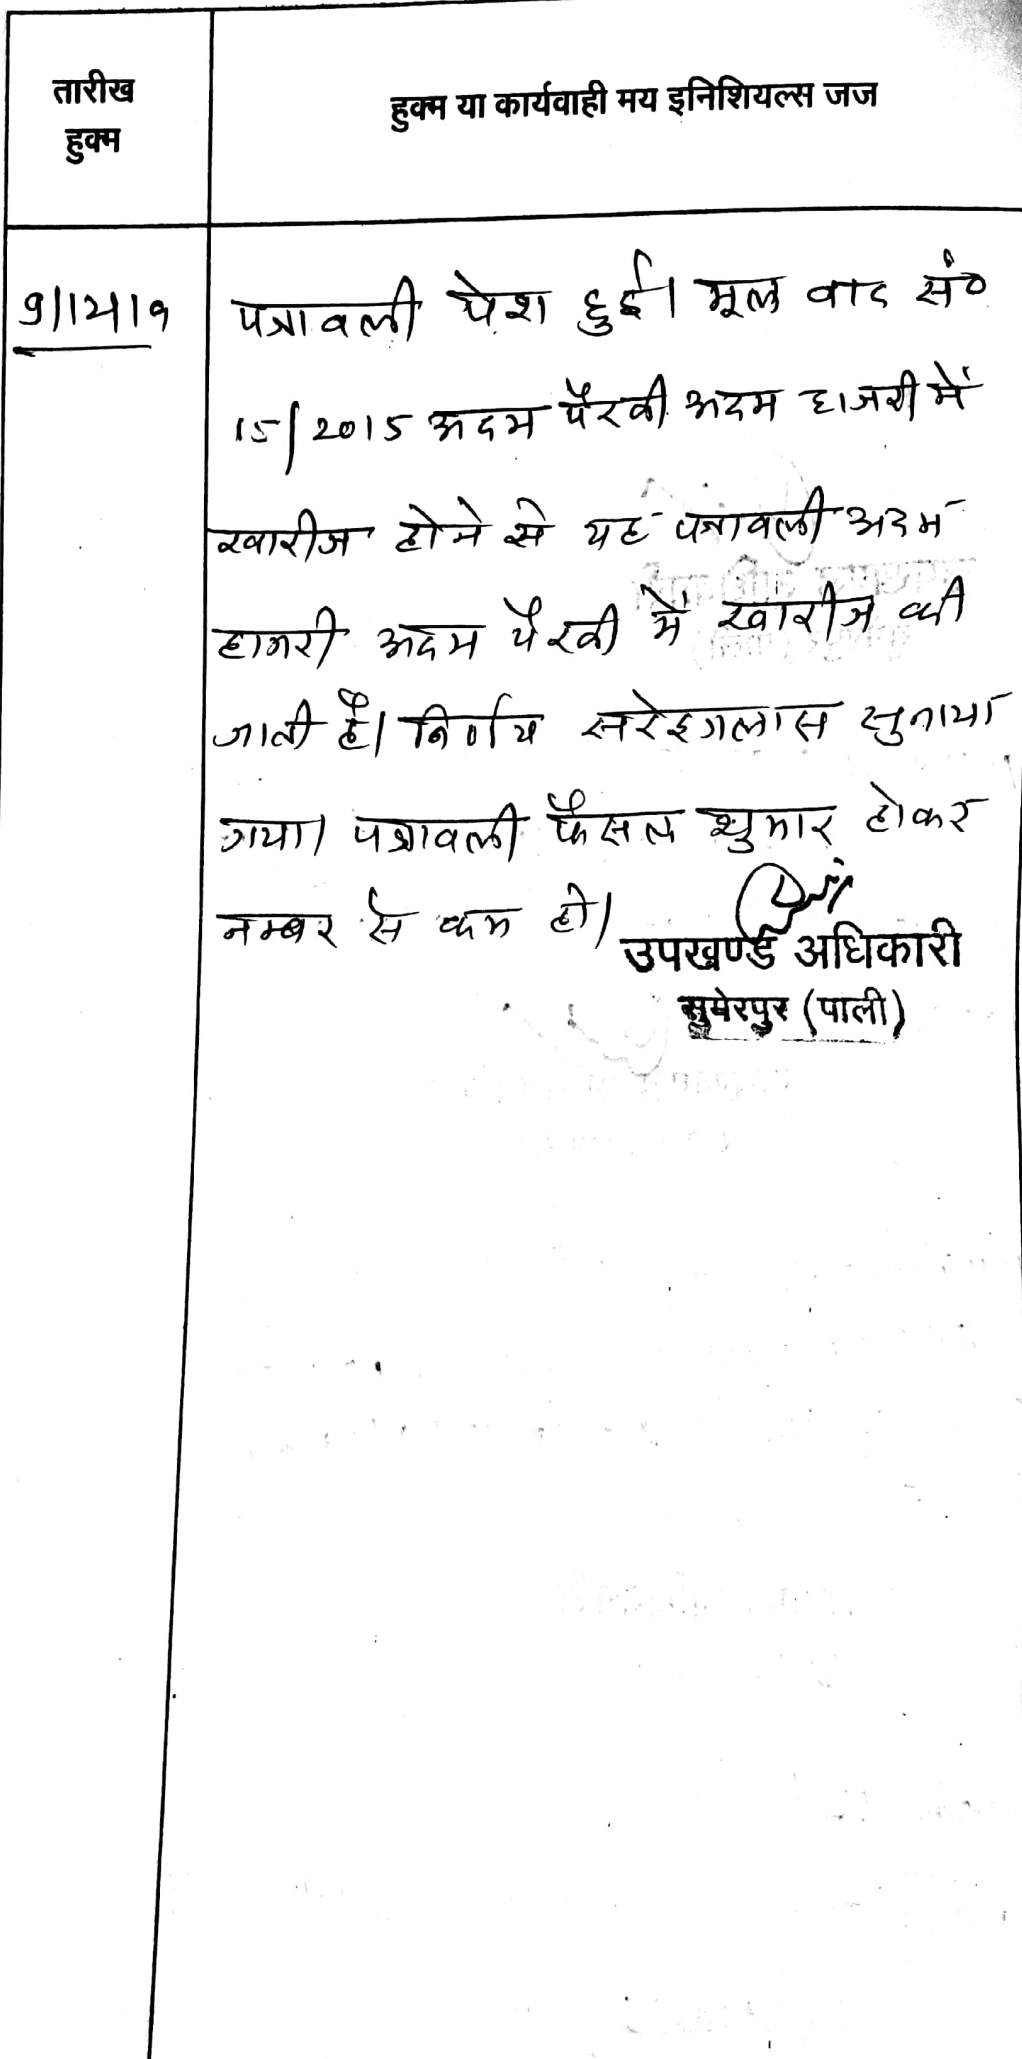 तारीख
हुक्म
हुक्म या कार्यवाही मय इनिशियल्स जज
पत्रावली पेश हुई। मूल वाद सं०
15/2015 अदम पैरवी अदम हाजरी में
खारीज होने से यह पत्रावली अदम
हाजरी अदम पैरवी में खारीज की
जाती है। निर्णय सरेइजलास सुनाया
गया। पत्रावली फैसल शुमार होकर
नम्बर से कम हो।
उपखण्ड अधिकारी
सुमेरपुर (पाली)